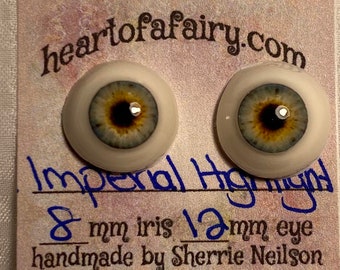 heartofafairy.com
Imperial Highlight
8 mm iris 12 mm eye
handmade by Sherrie Neilson